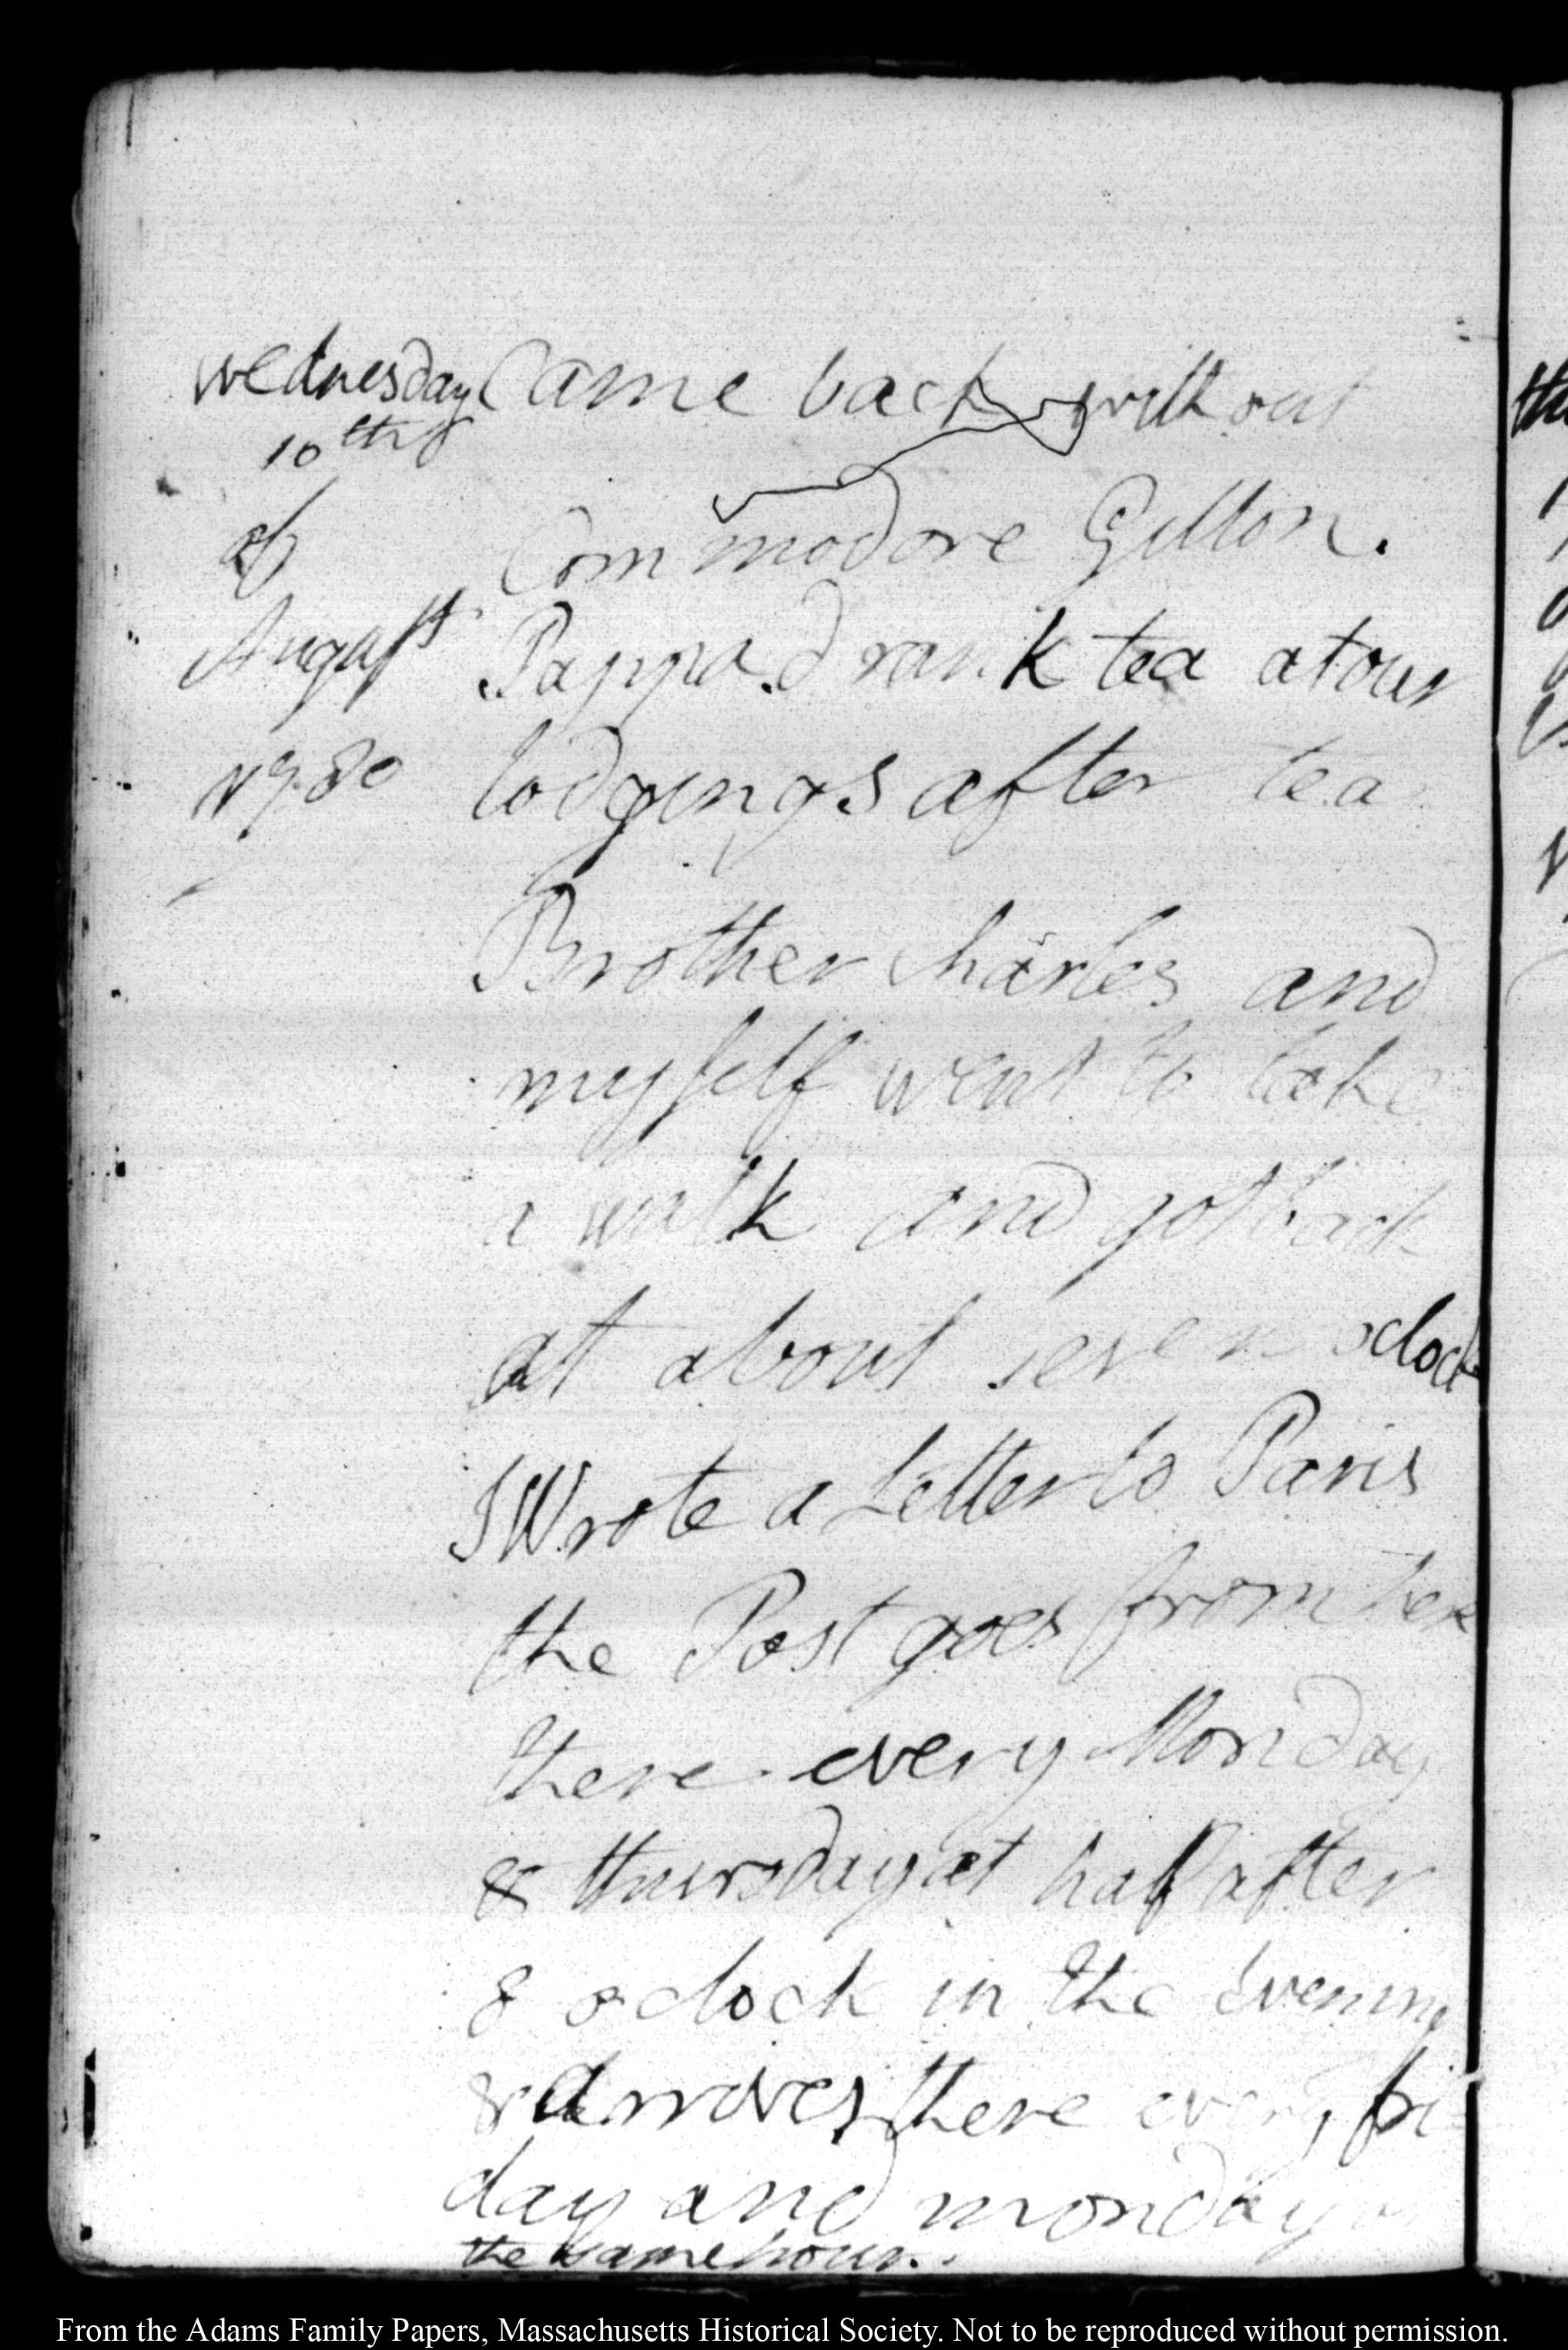 wednesday
10th
of
August
1780
Came back without
Commodore Gillon.
Pappa drank tea at our
lodgings after tea
Brother Charles and
myself went to take
a walk and got back
at about seven oclock
I Wrote a Letter to Paris
the Post goes from here
there every Monday
& thursday at half after
8 oclock in the Evening
& arrives there every fri-
day and monday
the same hour.
From the Adams Family Papers, Massachusetts Historical Society. Not to be reproduced without permission.